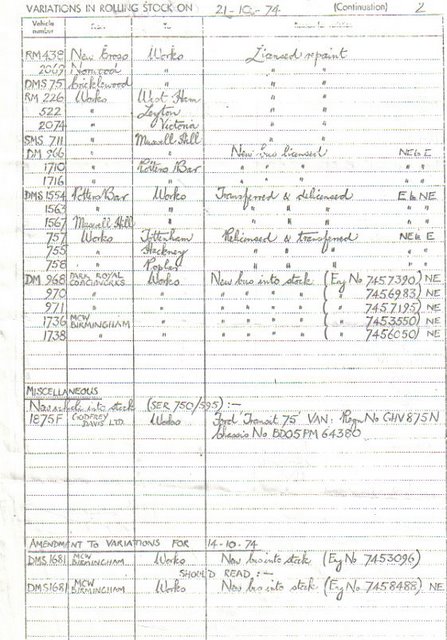 VARIATIONS IN ROLLING STOCK ON 21-10-74 (Continuation) 2
Vehicle number From To
RM 438 New Cross Works Licensed repaint
2069 Norwood " " "
DMS 75 Cricklewood " " "
RM 226 Works West Ham " "
522 " Leyton " "
2074 " Victoria " "
SMS 711 " Muswell Hill " "
DM 966 " " New bus licensed NE to E
1710 " Potters Bar " " " "
1716 " " " " " "
DMS 1554 Potters Bar Works Transferred & delicensed E to NE
1563 " " " " " " "
1567 Muswell Hill " " " " " "
757 Works Tottenham Relicensed & transferred NE to E
755 " Hackney " " " " "
758 " Poplar " " " " "
DM 968 PARK ROYAL COACHWORKS Works New bus into stock (Eng No 7457390) NE
970 " " " " " " ( " 7456983) NE
971 " " " " " " ( " 7457195) NE
1736 MCW BIRMINGHAM " " " " " ( " 7453550) NE
1738 " " " " " " ( " 7456050) NE
MISCELLANEOUS
New vehicle into stock (SER 750/595) :-
1875F GODFREY DAVIS LTD. Works Ford 'Transit 75' VAN: Regn No GHV 875N
Chassis No BD05PM 64380
AMENDMENT TO VARIATIONS FOR 14-10-74
DMS 1681 MCW BIRMINGHAM Works New bus into stock (Eng No 7453096)
SHOULD READ :-
DMS 1681 MCW BIRMINGHAM Works New bus into stock (Eng No 7458488) NE